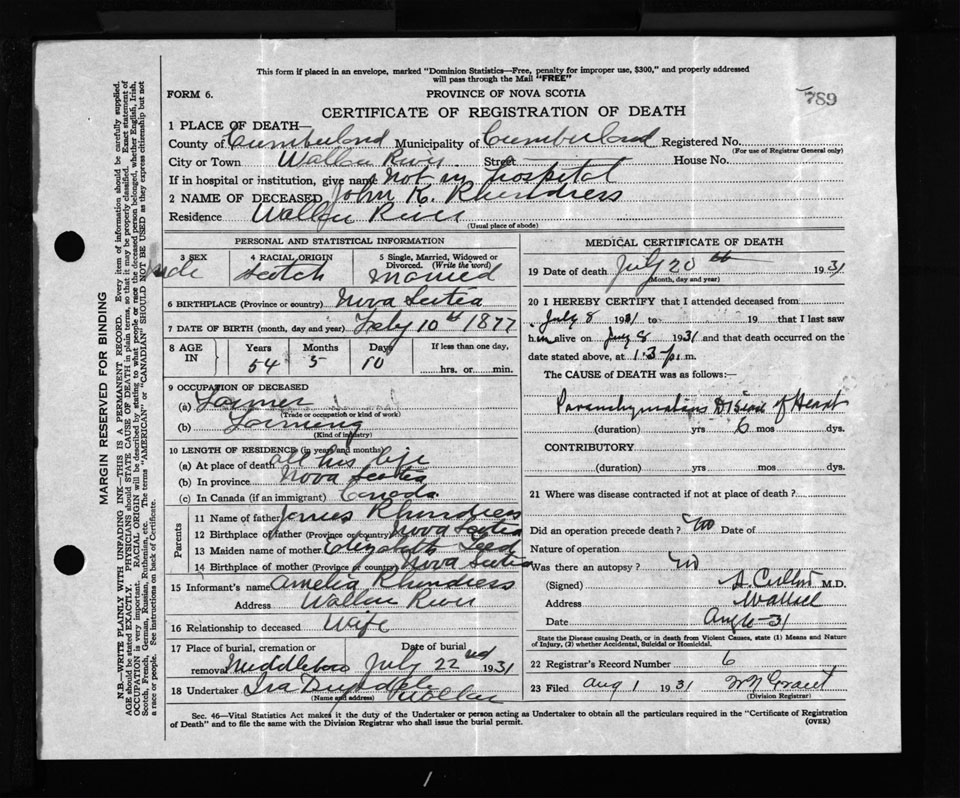 This form if placed in an envelope, marked "Dominion Statistics—Free, penalty for improper use, $300," and properly addressed
will pass through the Mail "FREE"
FORM 6.
PROVINCE OF NOVA SCOTIA
789
CERTIFICATE OF REGISTRATION OF DEATH
1 PLACE OF DEATH—
County of Cumberland Municipality of Cumberland Registered No.
(For use of Registrar General only)
City or Town Wallace River Street House No.
If in hospital or institution, give name Not in hospital
2 NAME OF DECEASED John K. Rhindress
Residence Wallace River
(Usual place of abode)
PERSONAL AND STATISTICAL INFORMATION
3 SEX 4 RACIAL ORIGIN 5 Single, Married, Widowed or
Divorced. (Write the word)
Male Scotch Married
6 BIRTHPLACE (Province or country) Nova Scotia
7 DATE OF BIRTH (month, day and year) Feby 10th 1877
8 AGE IN Years Months Days If less than one day,
54 5 10 hrs. or min.
9 OCCUPATION OF DECEASED
(a) Farmer
(Trade or occupation or kind of work)
(b) Farming
(Kind of industry)
10 LENGTH OF RESIDENCE (in years and months)
(a) At place of death all his life
(b) In province Nova Scotia
(c) In Canada (if an immigrant) Canada
Parents
11 Name of father James Rhindress
12 Birthplace of father (Province or country) Nova Scotia
13 Maiden name of mother Elizabeth
14 Birthplace of mother (Province or country) Nova Scotia
15 Informant's name Amelia Rhindress
Address Wallace River
16 Relationship to deceased Wife
17 Place of burial, cremation or removal Date of burial
Middleboro July 22nd 1931
18 Undertaker Ira Wallace
(Name and address)
MEDICAL CERTIFICATE OF DEATH
19 Date of death July 20th 1931
(Month, day and year)
20 I HEREBY CERTIFY that I attended deceased from
July 8 1931 to 19 that I last saw
him alive on July 8 1931 and that death occurred on the
date stated above, at 1.3 p.m.
The CAUSE of DEATH was as follows:—
Parenchymatous Disease of Heart
(duration) yrs 6 mos dys.
CONTRIBUTORY
(duration) yrs. mos. dys.
21 Where was disease contracted if not at place of death?
Did an operation precede death? No Date of
Nature of operation
Was there an autopsy? No
(Signed) M.D.
Address Wallace
Date Aug 6-31
State the Disease causing Death, or in death from Violent Causes, state (1) Means and Nature
of Injury, (2) whether Accidental, Suicidal or Homicidal.
22 Registrar's Record Number 6
23 Filed Aug 1 1931 Grant
(Division Registrar)
Sec. 46—Vital Statistics Act makes it the duty of the Undertaker or person acting as Undertaker to obtain all the particulars required in the "Certificate of Registration
of Death" and to file the same with the Division Registrar who shall issue the burial permit.
(OVER)
MARGIN RESERVED FOR BINDING
N.B.—WRITE PLAINLY WITH UNFADING INK—THIS IS A PERMANENT RECORD. Every item of information should be carefully supplied.
AGE should be stated EXACTLY. PHYSICIANS should STATE CAUSE OF DEATH in plain terms, so that it may be properly classified. Exact statement of
OCCUPATION is very important. RACIAL ORIGIN will be described by stating to what people or race the deceased person belonged, whether English, Irish,
Scotch, French, German, Russian, Ruthenian, etc. The terms "AMERICAN" or "CANADIAN" SHOULD NOT BE USED as they express citizenship but not
a race or people. See instructions on back of Certificate.